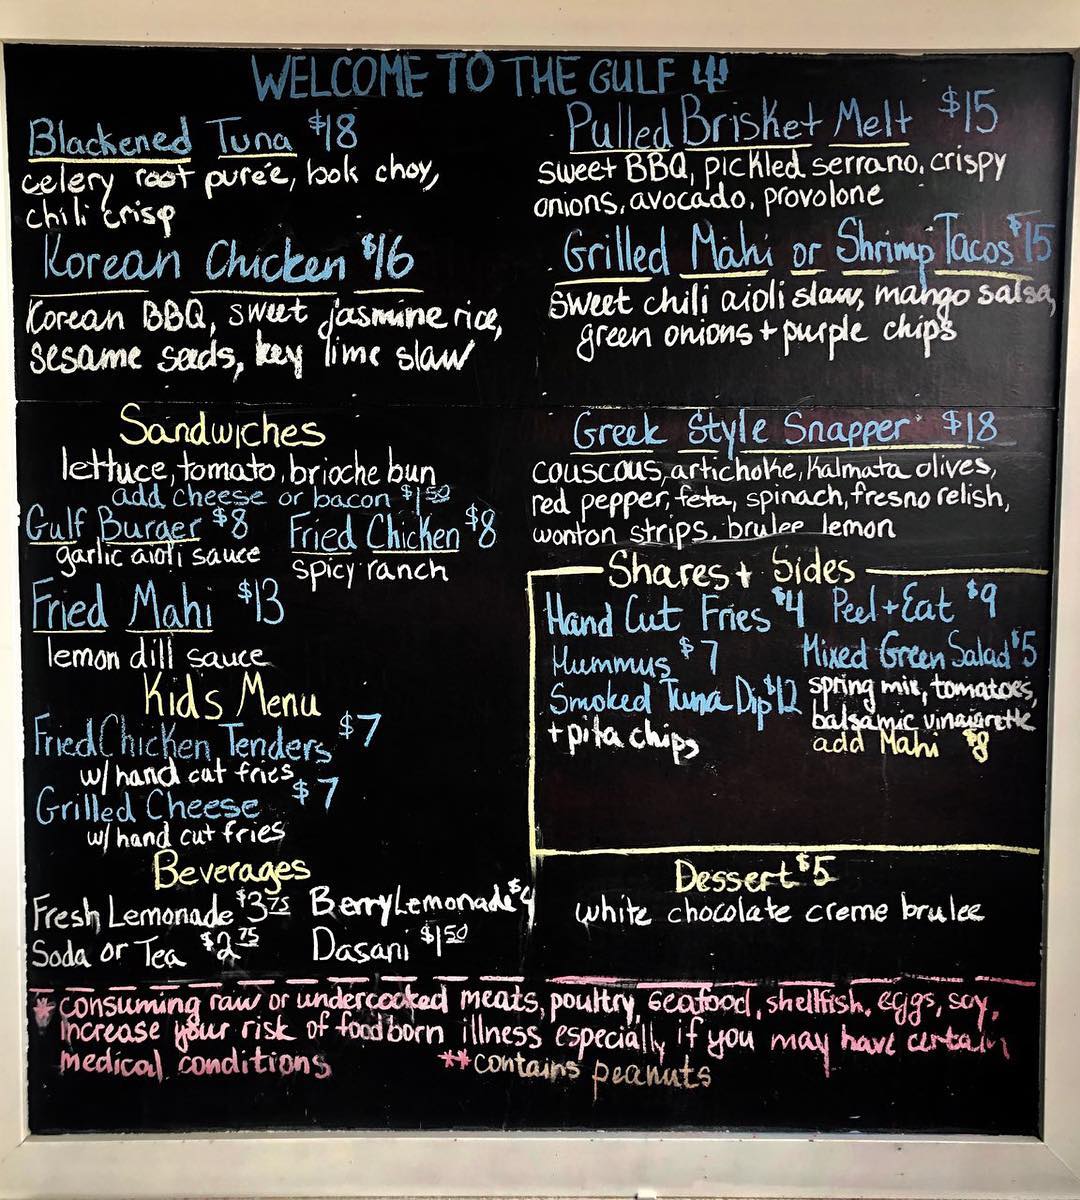 WELCOME TO THE GULF
Blackened Tuna $18
celery root purée, bok choy,
chili crisp
Korean Chicken $16
Korean BBQ, sweet jasmine rice,
sesame seeds, key lime slaw
Pulled Brisket Melt $15
sweet BBQ, pickled serrano, crispy
onions, avocado, provolone
Grilled Mahi or Shrimp Tacos $15
Sweet chili aioli slaw, mango salsa,
green onions + purple chips
Sandwiches
lettuce, tomato, brioche bun
add cheese or bacon $1.50
Gulf Burger $8
garlic aioli sauce
Fried Chicken $8
spicy ranch
Fried Mahi $13
lemon dill sauce
Kids Menu
Fried Chicken Tenders $7
w/ hand cut fries
Grilled Cheese $7
w/ hand cut fries
Beverages
Fresh Lemonade $3.75
Berry Lemonade $4
Soda or Tea $2.75
Dasani $1.50
Greek Style Snapper $18
couscous, artichoke, kalmata olives,
red pepper, feta, spinach, fresno relish,
wonton strips, brulee lemon
Shares + Sides
Hand Cut Fries $4
Peel + Eat $9
Hummus $7
Smoked Tuna Dip $12
+ pita chips
Mixed Green Salad $5
spring mix, tomatoes,
balsamic vinaigrette
add Mahi $8
Dessert $5
white chocolate creme brulee
* consuming raw or undercooked meats, poultry, seafood, shellfish, eggs, soy,
increase your risk of food born illness especially if you may have certain
medical conditions
**contains peanuts